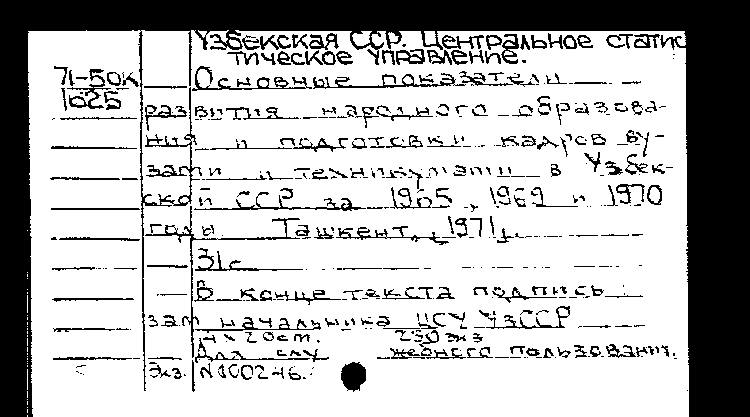 Узбекская ССР. Центральное статис
тическое управление.
71-50к
1625
Основные показатели
развития народного образова-
ния и подготовки кадров ву-
зами и техникумами в Узбек-
ской ССР за 1965, 1969 и 1970
годы Ташкент, 1971.
31с
В конце текста подпись:
зам начальника ЦСУ УзССР
250 экз
Для служебного пользования.
Экз. N 000246.